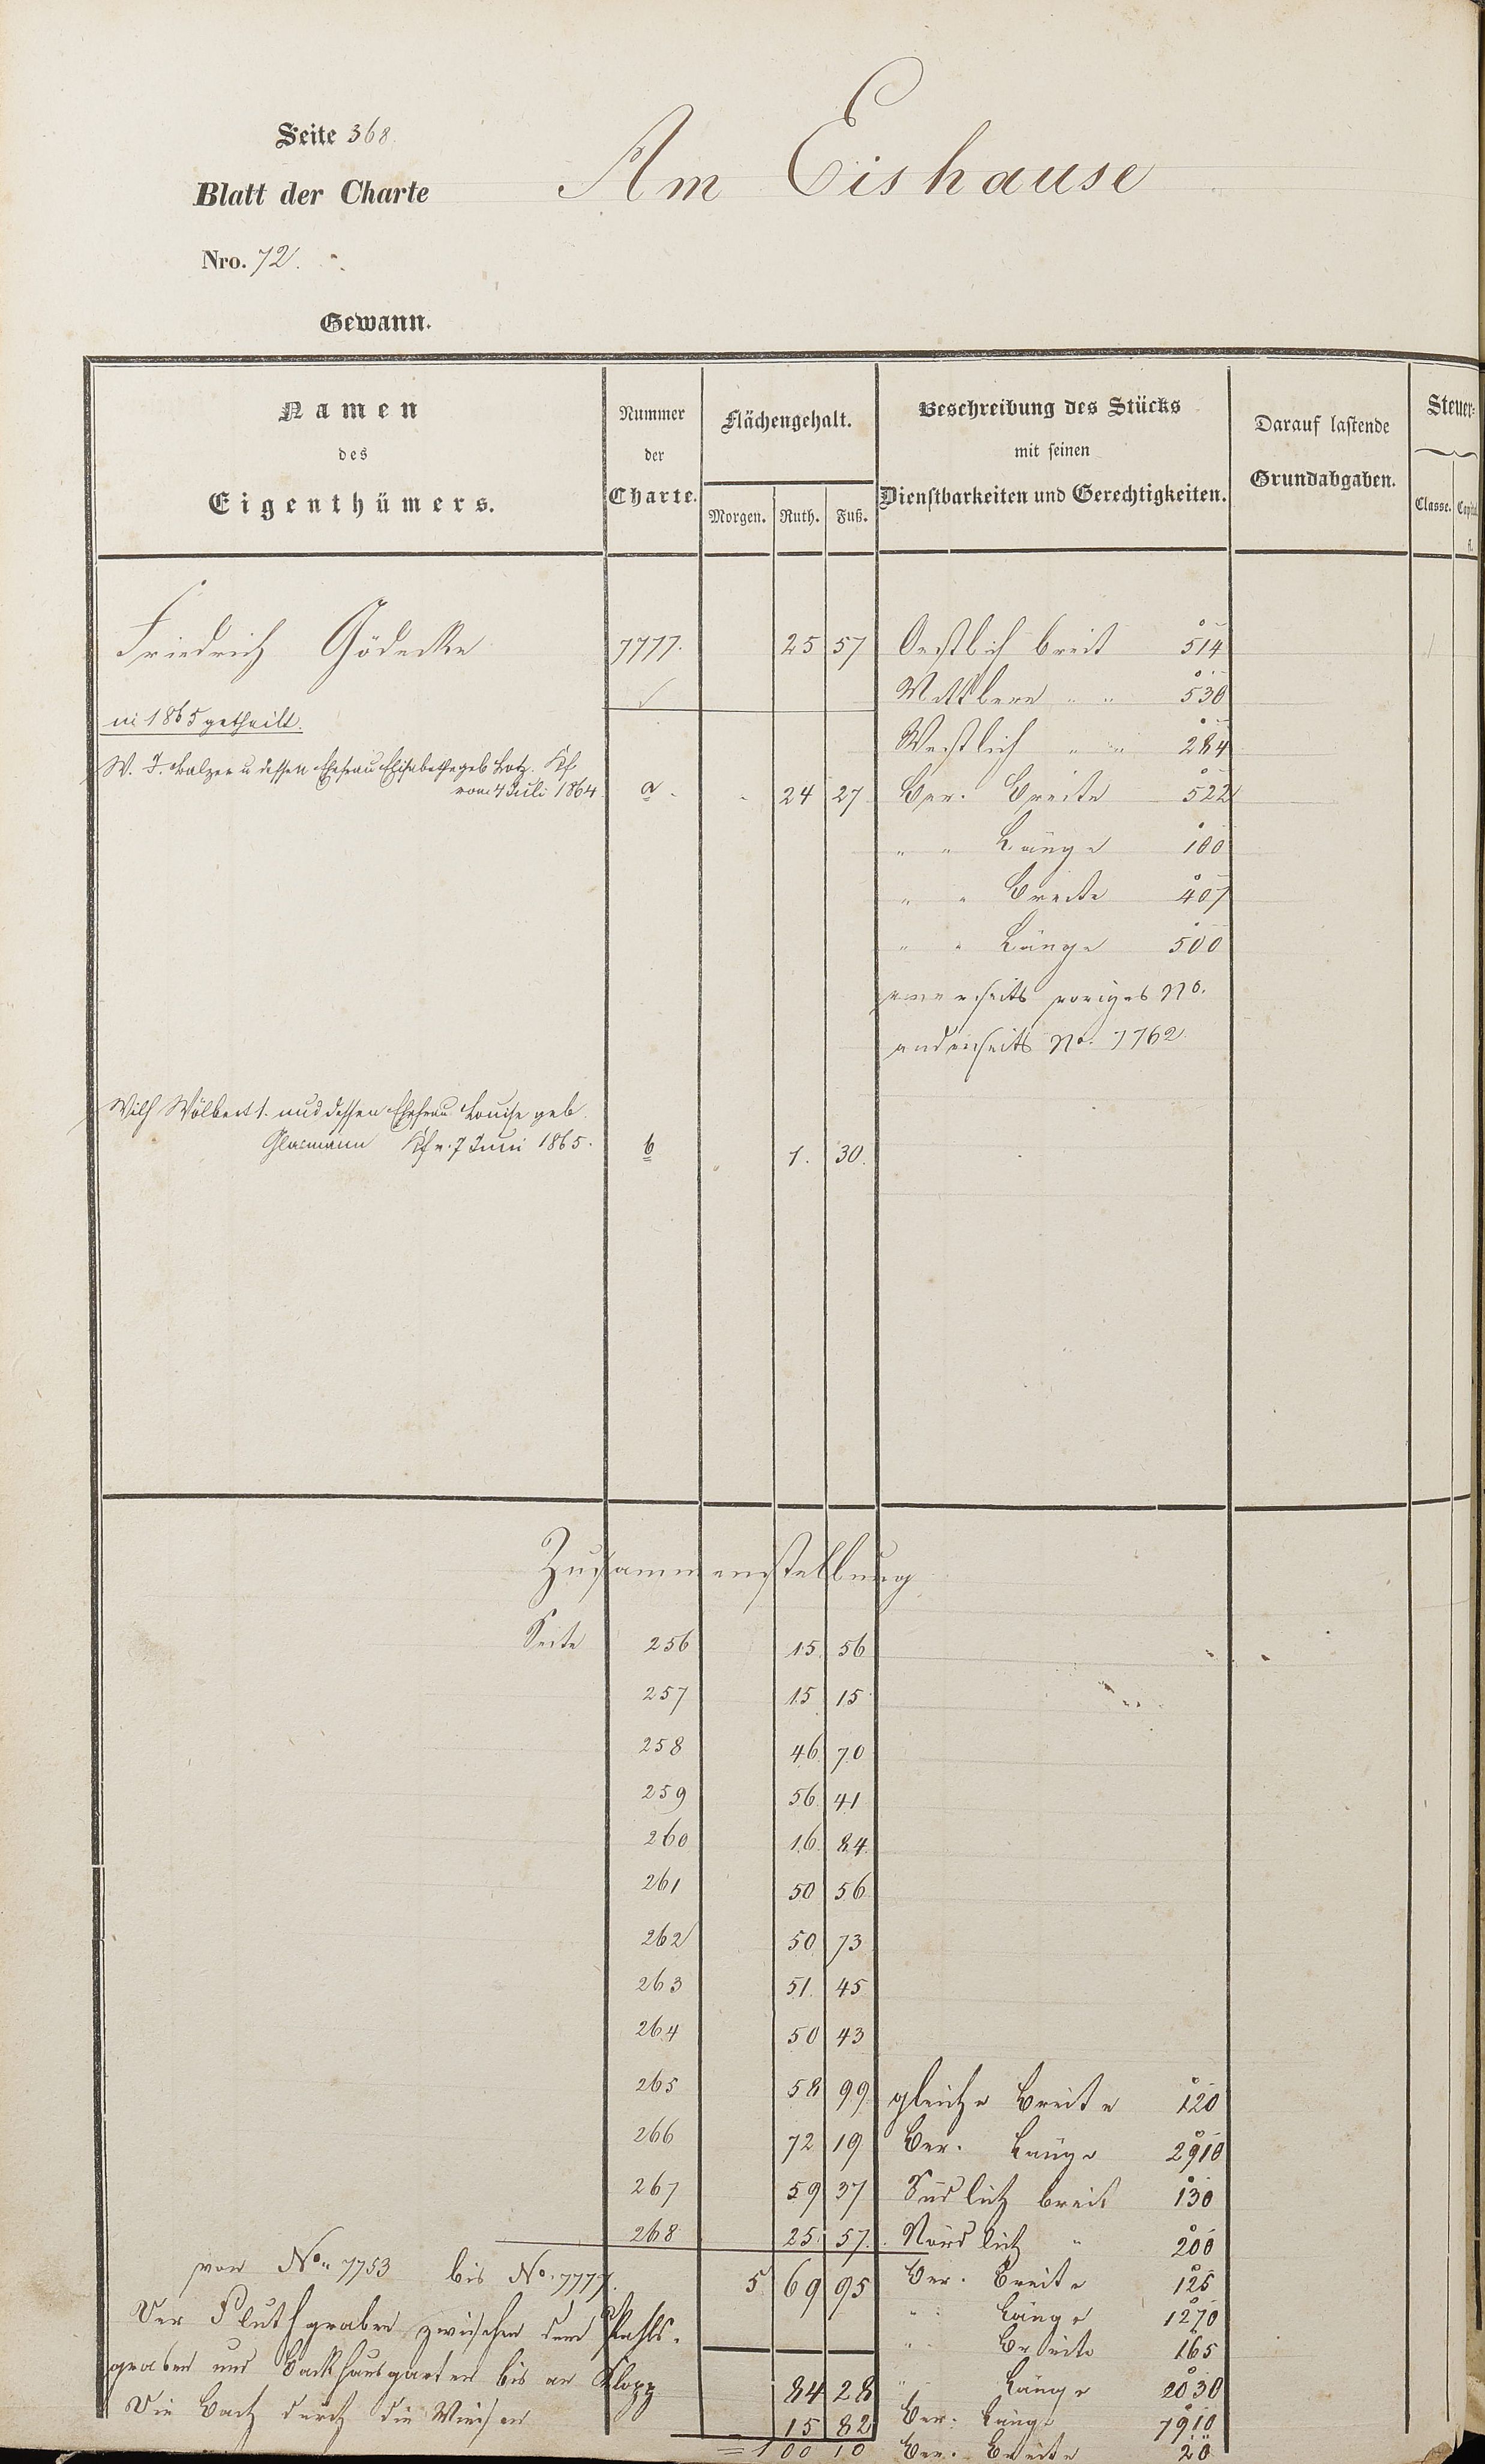 Seite 368.
Am Eishause
Blatt der Charte
Nro. 72.
Gewann.
Namen
des
Eigenthümers.
Nummer
der
Charte.
Flächengehalt.
Morgen. Ruth. Fuß.
Beschreibung des Stücks
mit seinen
Dienstbarkeiten und Gerechtigkeiten.
Darauf lastende
Grundabgaben.
Steuer-
Classe. Capital.
fl.
Friedrich Gödecke 7777. 25 57 Oestlich breit 514
Mittlere " " 530
in 1865 getheilt.
Westlich " " 284
W. J. Balzer u dessen Ehefrau Elisabethe geb Lotz. Kf
vom 4 Juli 1864 a. 24 27 Ber. Breite 522
" " Länge 100
" " Breite 407
" " Länge 500
einerseits voriges No.
anderseits No. 7762
Wilh Wölbert 1. und dessen Ehefrau Louise geb.
Kf v. 7 Juni 1865. b 1. 30.
Zusammenstellung
Seite 256 15 56
257 15 15
258 46 70
259 56 41
260 16 84
261 50 56
262 50 73
263 51 45
264 50 43
265 58 99 gleiche Breite 120
266 72 19 Ber. Länge 2910
267 59 37 Südlich breit 130
268 25 57. Nördlich " 200
von No. 7753 bis No. 7777. 5 69 95 Ber. Breite 125
Der Fluthgraben zwischen dem Pfahls- " Länge 1270
" Breite 165
graben und Backhausgarten bis an Klopp 84 28 " Länge 2030
Die Bach durch die Wiesen 15 82 Ber. Länge 7910
= 1 00 10 Ber. Breite 20